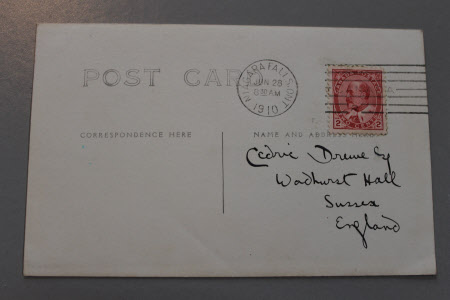 POST CARD
NIAGARA FALLS. ONT.
JUN 28
1910
2 2
CORRESPONDENCE HERE
NAME AND ADDRESS HERE
Cedric Drewe Esq
Wadhurst Hall
Sussex
England